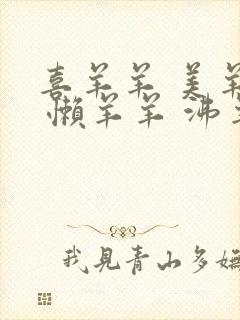 喜羊羊 美羊
懒羊羊 沸羊
我見青山多嫵